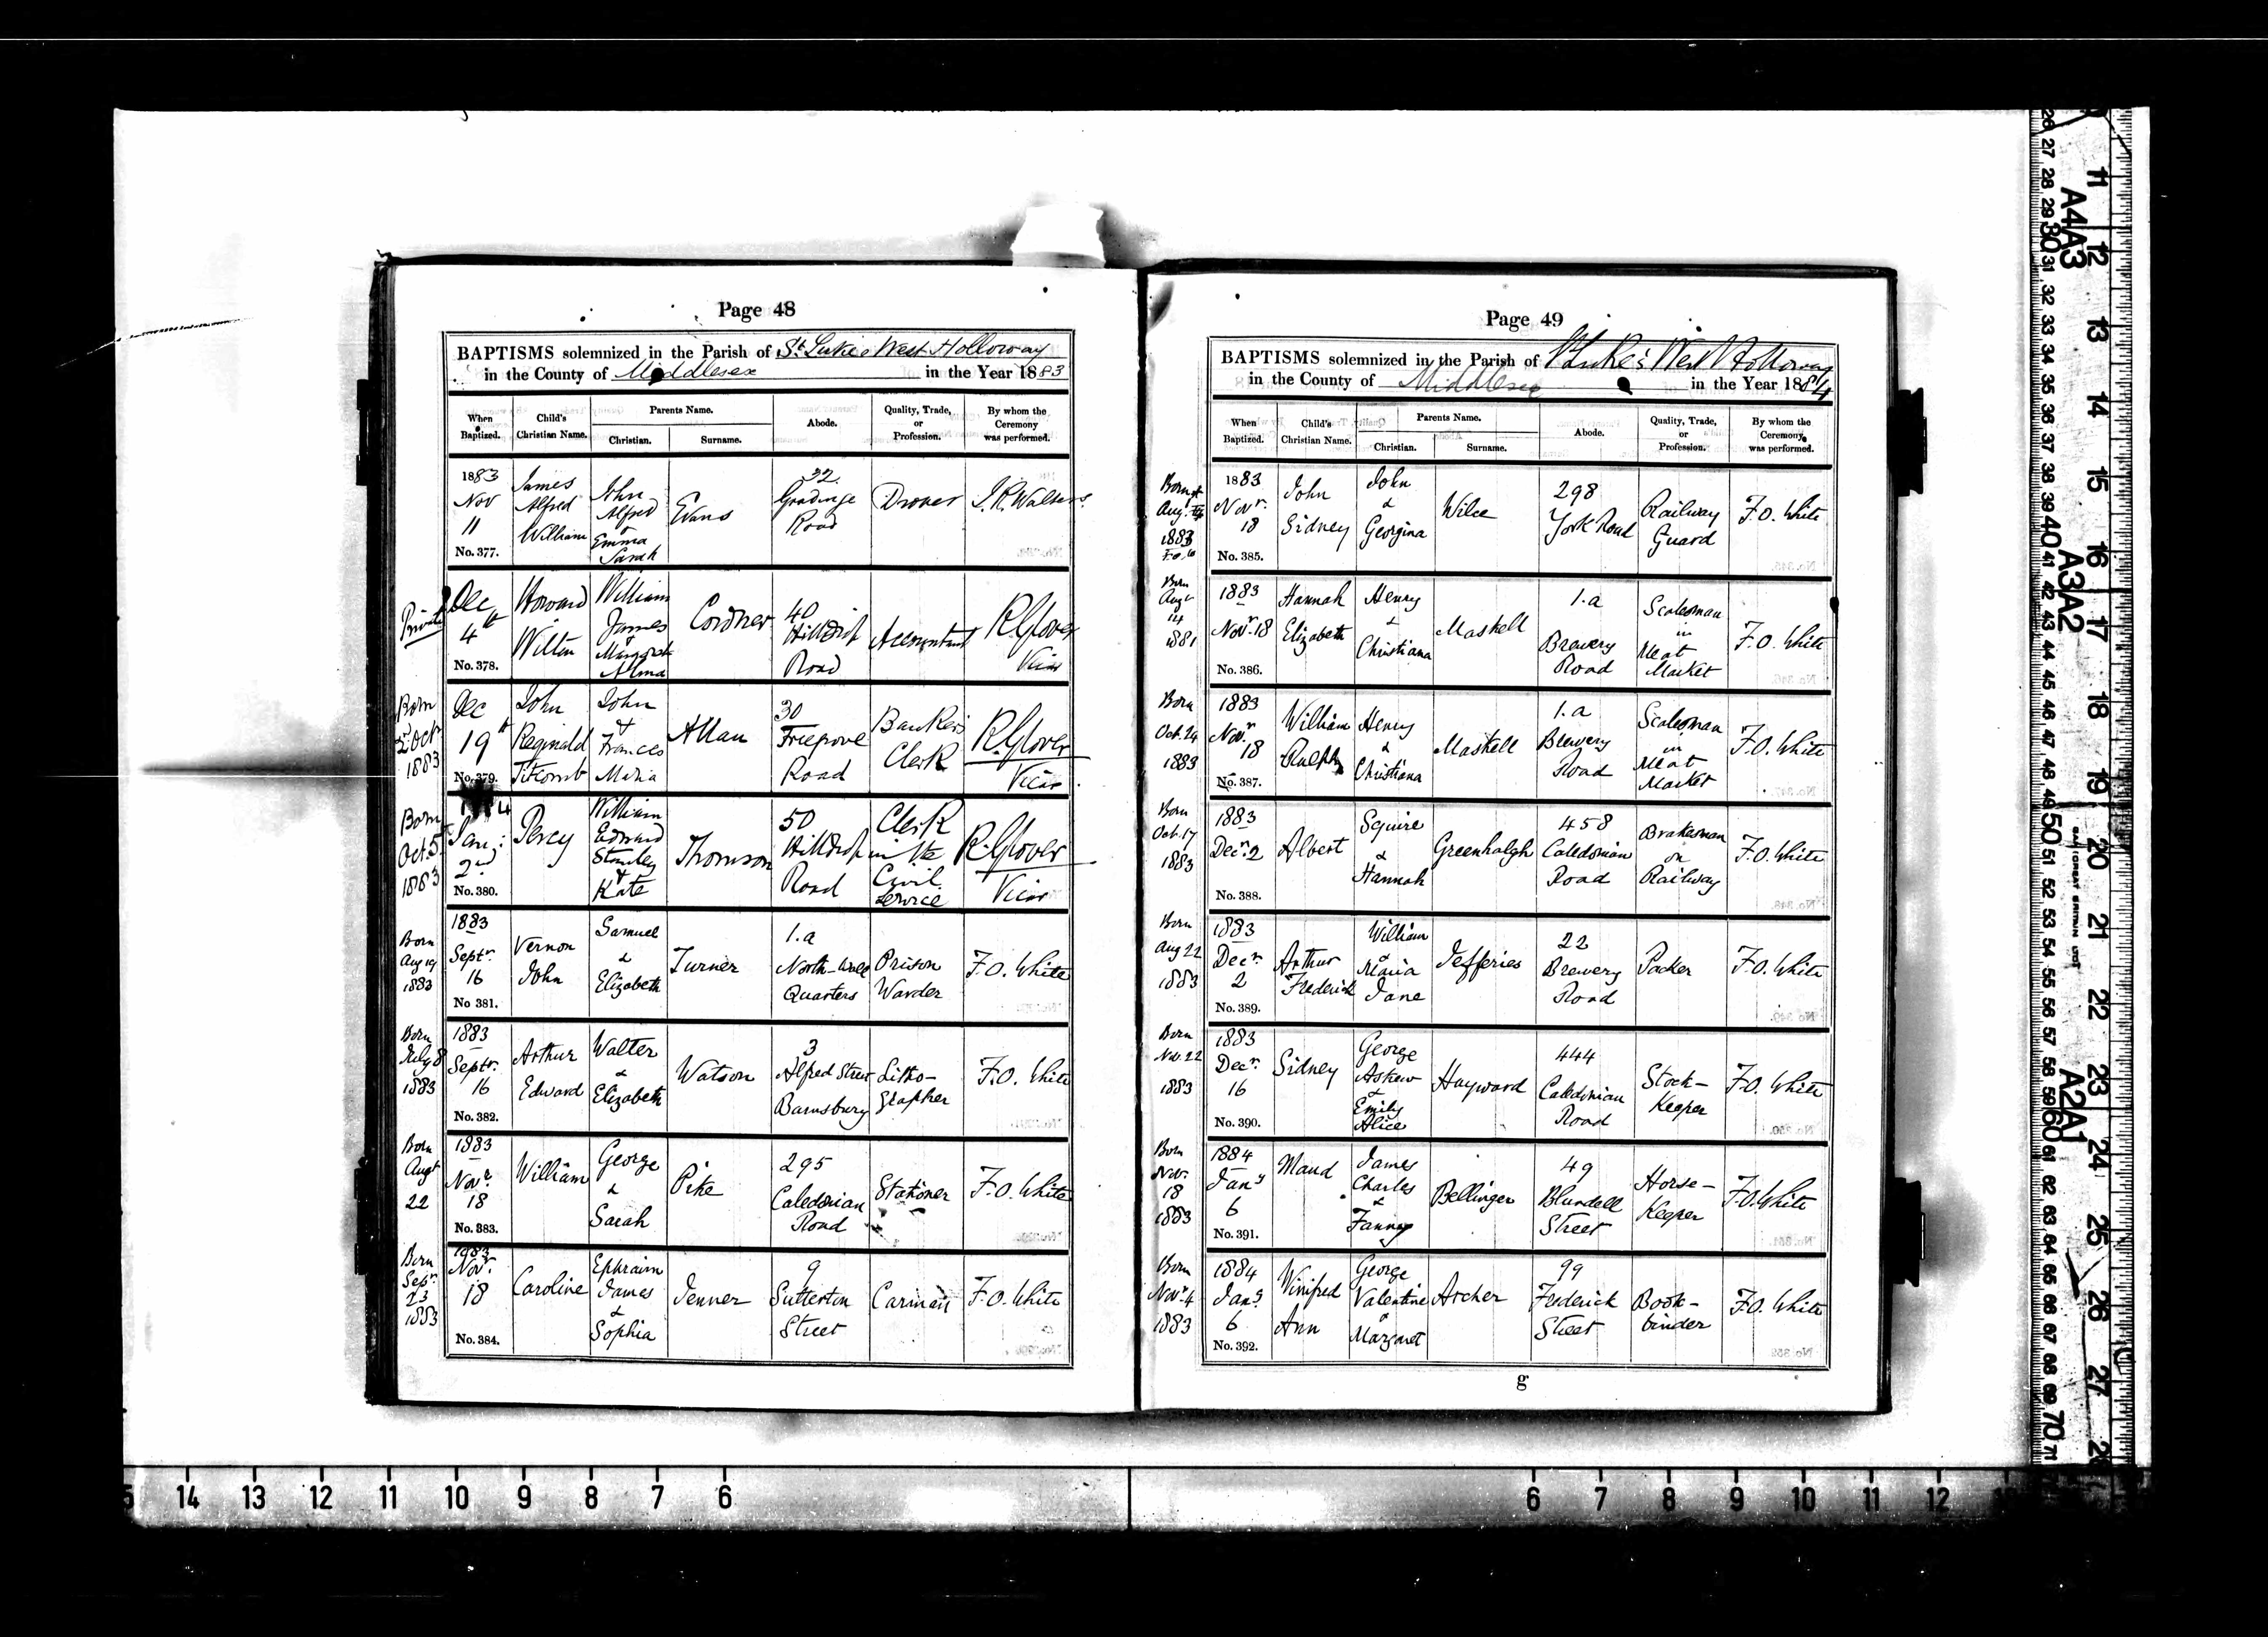 Page 48
BAPTISMS solemnized in the Parish of St Luke's West Holloway
in the County of Middlesex in the Year 1883
When Baptized. Child's Christian Name. Parents Name. Christian. Surname. Abode. Quality, Trade, or Profession. By whom the Ceremony was performed.
1883 Nov 11 No. 377. James Alfred William John Alfred & Emma Sarah Evans 32 Road Drover
Private Dec 4th No. 378. Howard Wilton William James & Margaret Alma Cordner 40 Hilldrop Road Accountant R. Glover Vicar
Born 2nd Oct 1883 Dec 19th No. 379. John Reginald Titcomb John & Frances Maria Allan 30 Freegrove Road Bankers Clerk R. Glover Vicar
Born Oct. 5 1883 Jany: 2nd No. 380. Percy William Edward Stanley & Kate Thomson 50 Hilldrop Road Clerk in the Civil Service R. Glover Vicar
Born Aug 19 1883 1883 Septr. 16 No 381. Vernon John Samuel & Elizabeth Turner 1.a North-Wall Quarters Prison Warder F.O. White
Born July 8 1883 1883 Septr. 16 No. 382. Arthur Edward Walter & Elizabeth Watson 3 Alfred Street Barnsbury Litho-grapher F.O. White
Born Augt 22 1883 Novr. 18 No. 383. William George & Sarah Pike 295 Caledonian Road Stationer F.O. White
Born Sepr. 23 1883 1883 Novr. 18 No. 384. Caroline Ephraim James & Sophia Jenner 9 Sutterton Street Carman F.O. White
Page 49
BAPTISMS solemnized in the Parish of St Luke's West Holloway
in the County of Middlesex in the Year 1884
When Baptized. Child's Christian Name. Parents Name. Christian. Surname. Abode. Quality, Trade, or Profession. By whom the Ceremony was performed.
Born Augt 1883 1883 Novr. 18 No. 385. John Sidney John & Georgina Wilce 298 York Road Railway Guard F.O. White
Born Aug 14 1881 1883 Novr. 18 No. 386. Hannah Elizabeth Henry & Christiana Maskell 1.a Brewery Road Scalesman in Meat Market F.O. White
Born Oct. 24 1883 1883 Novr. 18 No. 387. William Ralph Henry & Christiana Maskell 1.a Brewery Road Scalesman in Meat Market F.O. White
Born Oct. 17 1883 1883 Decr. 2 No. 388. Albert Squire & Hannah Greenhalgh 458 Caledonian Road Brakesman on Railway F.O. White
Born Aug 22 1883 1883 Decr. 2 No. 389. Arthur Frederick William & Maria Jane Jefferies 22 Brewery Road Packer F.O. White
Born Nov. 22 1883 1883 Decr. 16 No. 390. Sidney George Askew & Emily Alice Hayward 444 Caledonian Road Stock-Keeper F.O. White
Born Nov. 18 1883 1884 Jany 6 No. 391. Maud James Charles & Fanny Bellinger 49 Blundell Street Horse-Keeper F.O. White
Born Novr. 4 1883 1884 Jany 6 No. 392. Winifred Ann George Valentine & Margaret Archer 99 Frederick Street Book-binder F.O. White
g